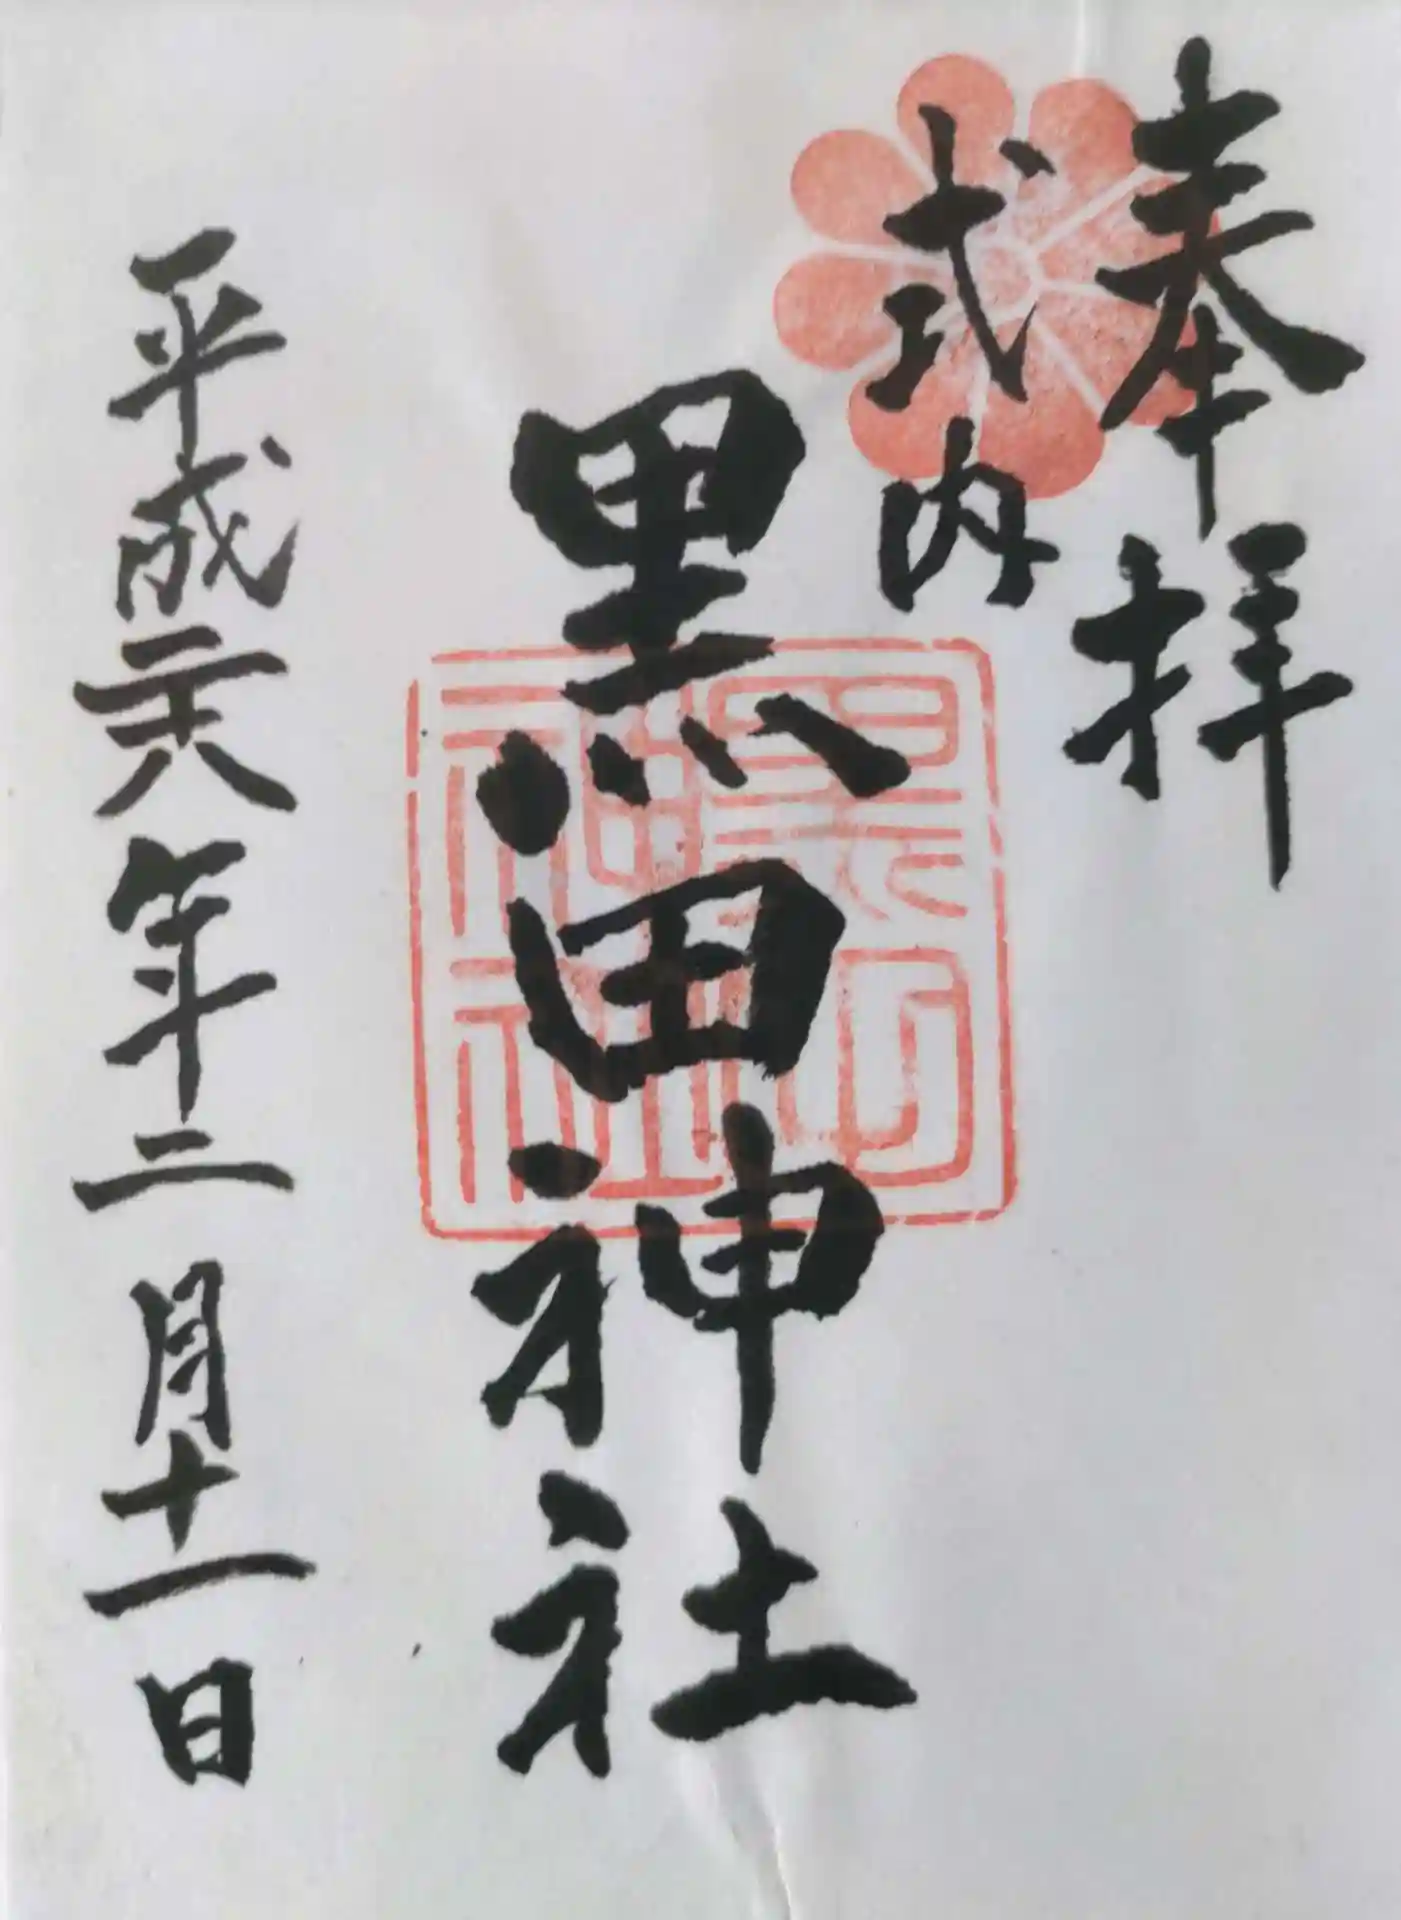 奉拝
式内
黒田神社
平成二十六年二月十一日